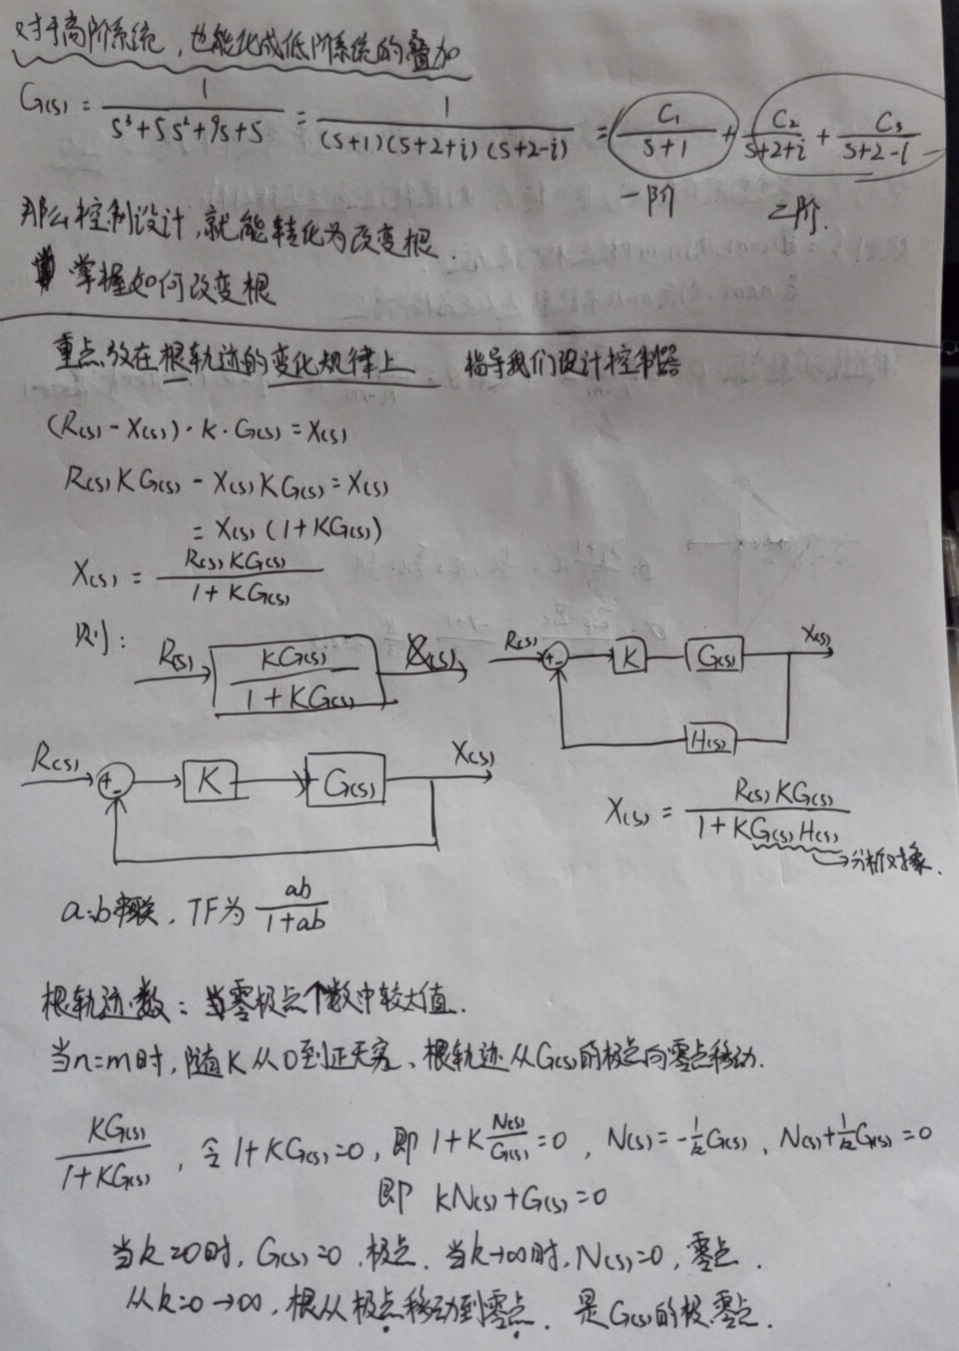 对于高阶系统,也能化成低阶系统的叠加
G(s) = 1/(s³+5s²+9s+5) = 1/((s+1)(s+2+i)(s+2-i)) = C₁/(s+1) + C₂/(s+2+i) + C₃/(s+2-i)
一阶 二阶.
那么控制设计,就能转化为改变根.
掌握如何改变根
重点放在根轨迹的变化规律上 指导我们设计控制器
(R(s) - X(s))·K·G(s) = X(s)
R(s)KG(s) - X(s)KG(s) = X(s)
= X(s) (1+KG(s))
X(s) = R(s)KG(s)/(1+KG(s))
则:
R(s) KG(s)/(1+KG(s)) X(s)
R(s) + - K G(s) X(s)
H(s)
R(s) + - K G(s) X(s)
X(s) = R(s)KG(s)/(1+KG(s)H(s))
→分析对象.
a:b串联, TF为 ab/(1+ab)
根轨迹数:当零极点个数中较大值.
当n=m时,随K从0到正无穷、根轨迹从G(s)的极点向零点移动.
KG(s)/(1+KG(s)), 令1+KG(s)=0, 即 1+K N(s)/G(s)=0, N(s)=-1/k G(s)、N(s)+1/k G(s)=0
即 kN(s)+G(s)=0
当k=0时, G(s)=0,极点. 当k→∞时, N(s)=0,零点.
从k=0→∞,根从极点移动到零点. 是G(s)的极零点.